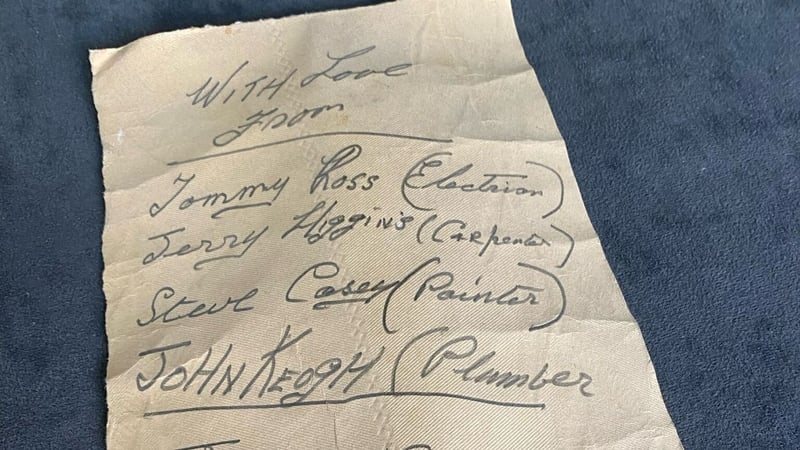 WITH Love
From
Tommy Ross (Electrion)
Jerry Higgin's (Carpenter)
Steve Casey (Painter)
JOHN KEOGH (Plumber